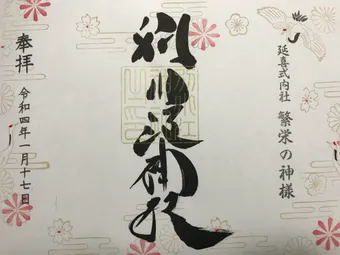 延喜式内社 繁栄の神様
別小江神社
奉拝
令和四年一月十七日